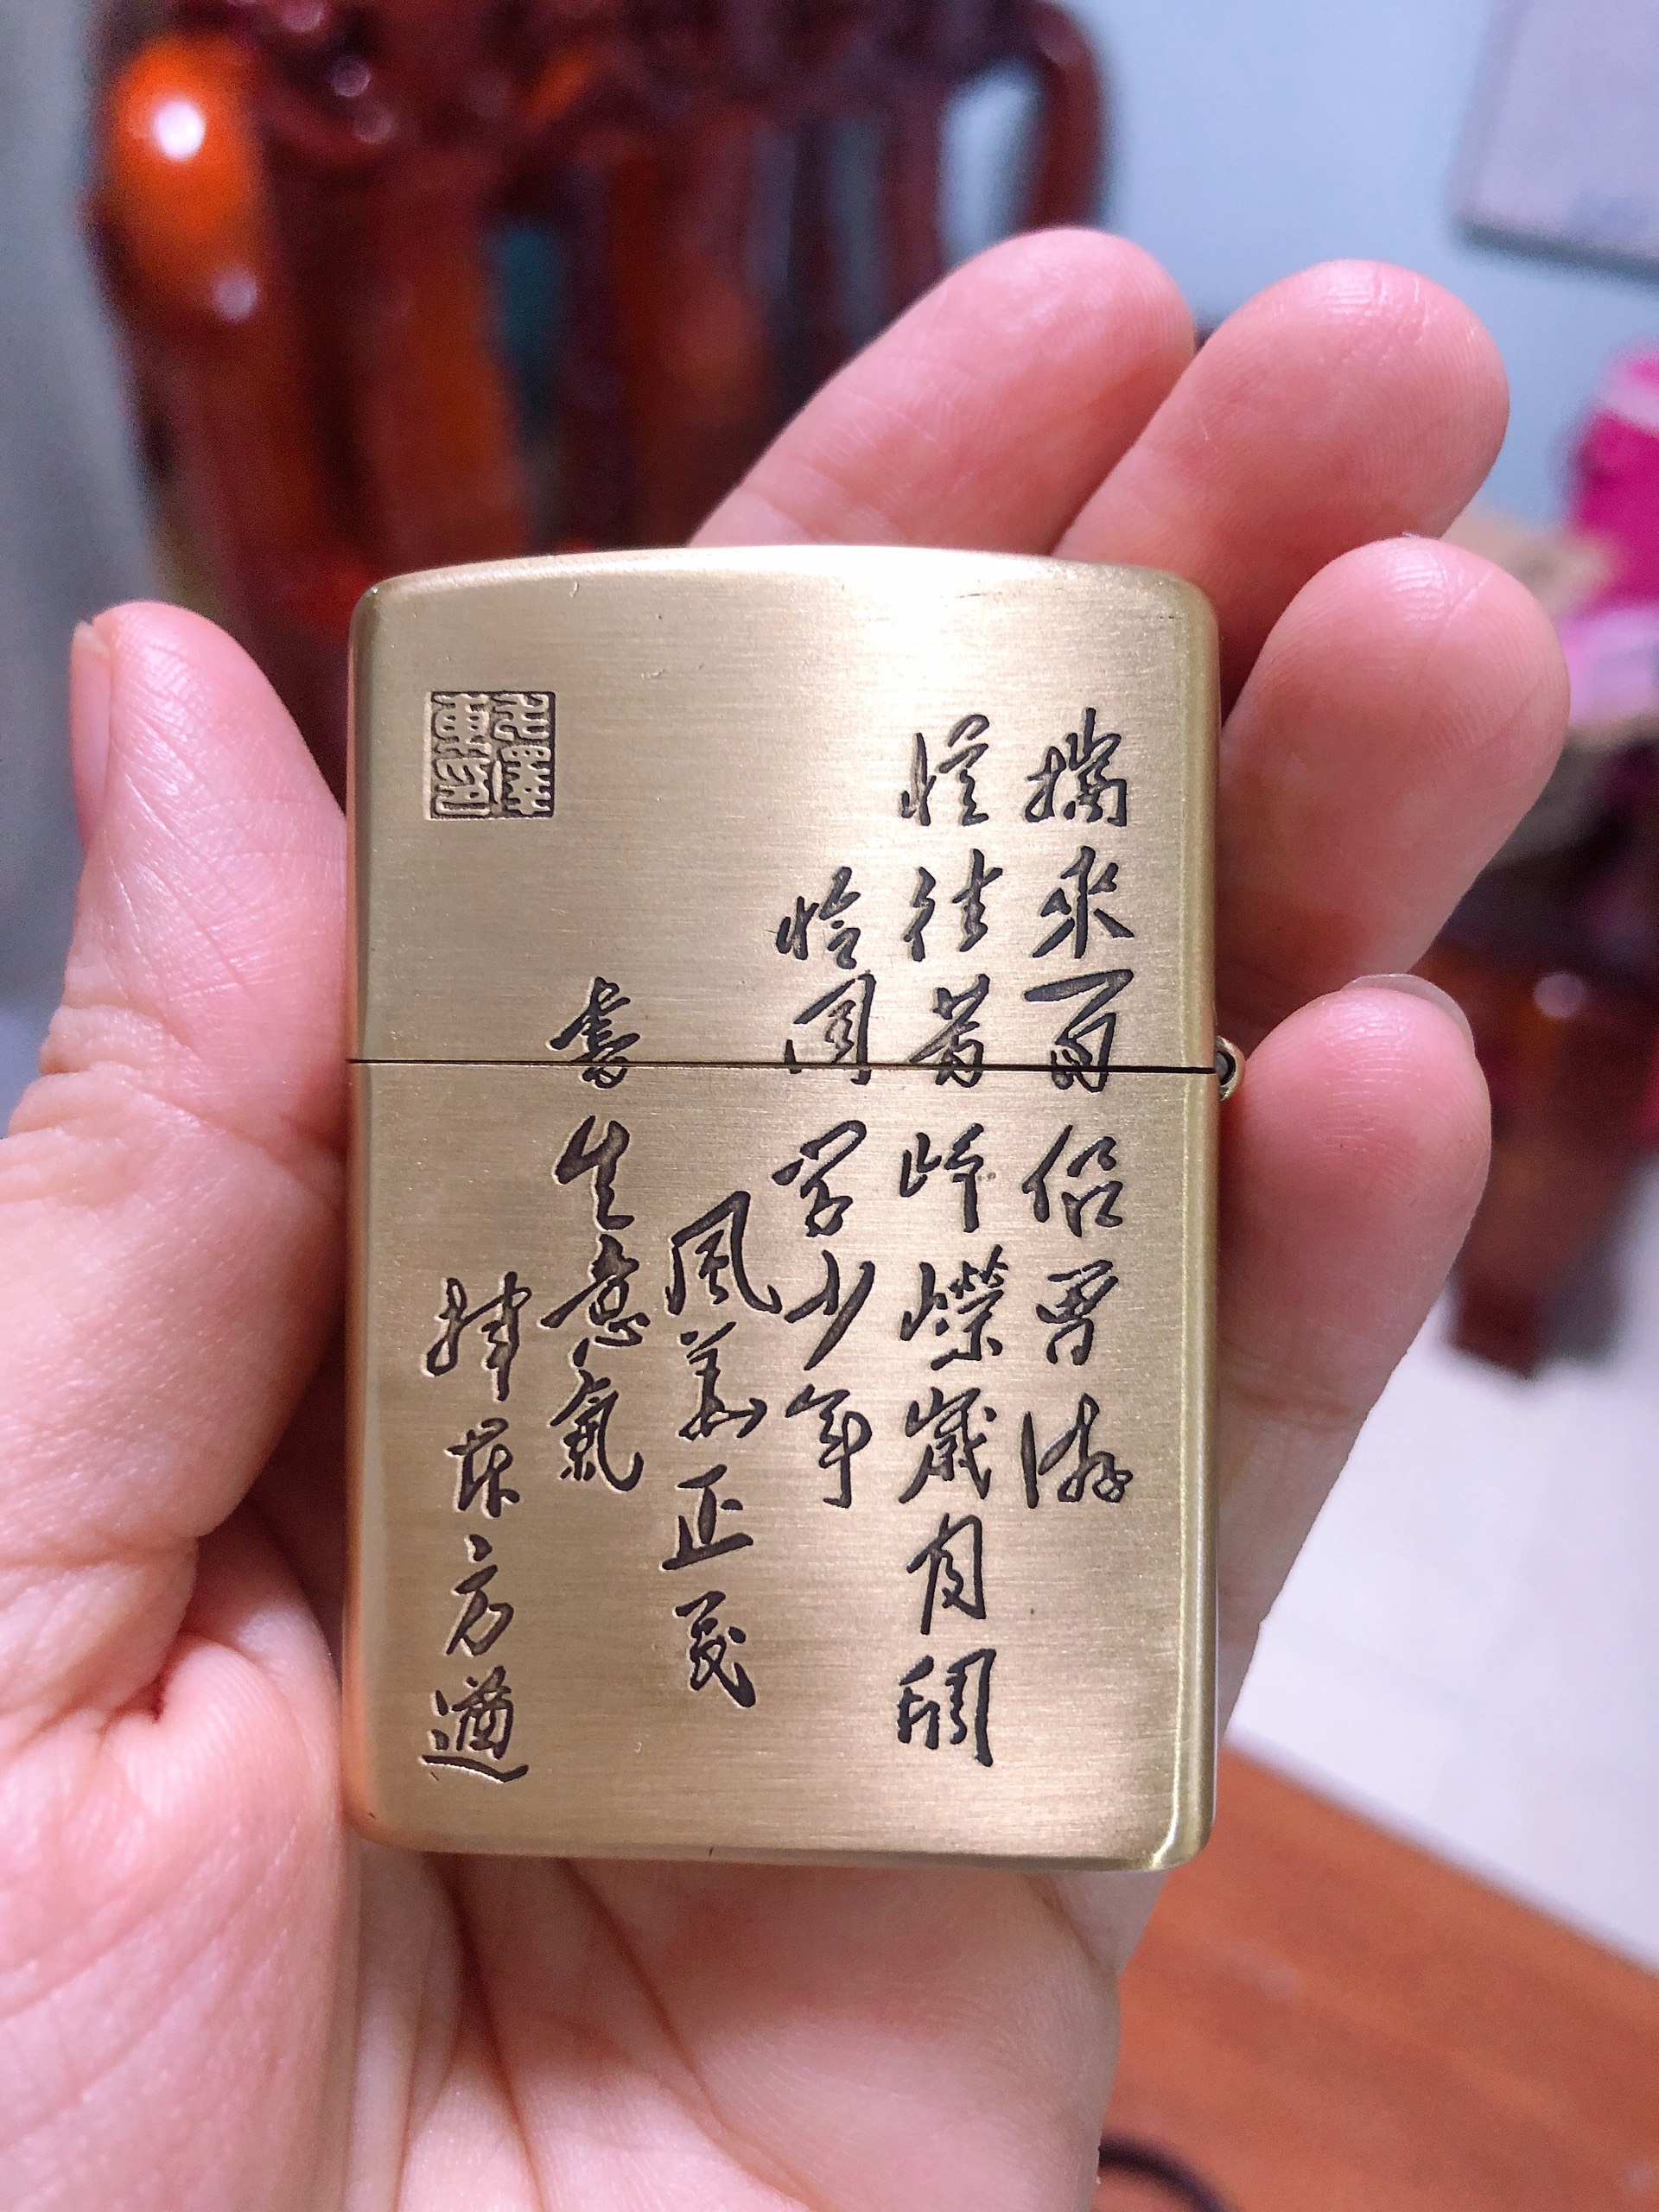 攜來百侶曾游
憶往昔崢嶸歲月稠
恰同学少年
風華正茂
書生意氣
揮斥方遒
毛澤東印